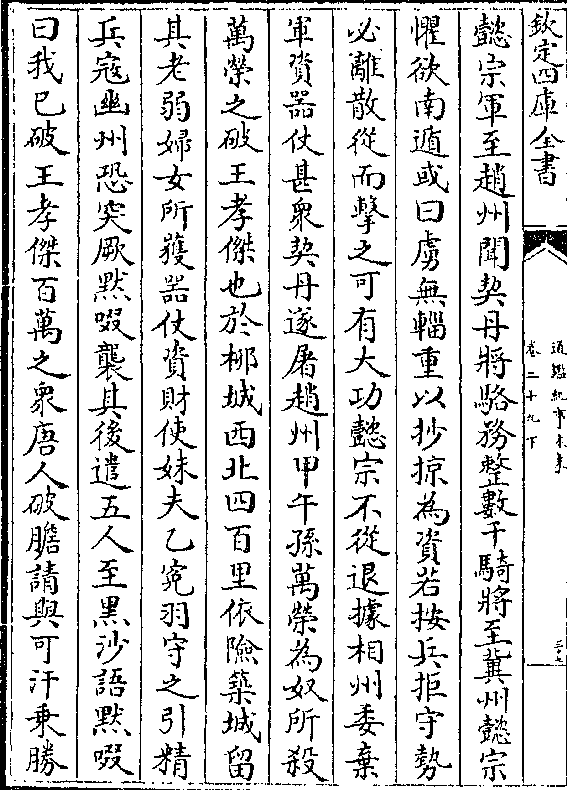 欽定四庫全書
通鑑紀事本末
卷二十九下
懿宗軍至趙州聞契丹將駱務整數千騎將至冀州懿宗
懼欲南遁或曰虜無輜重以抄掠為資若按兵拒守勢
必離散從而擊之可有大功懿宗不從退據相州委棄
軍資器仗甚衆契丹遂屠趙州甲午孫萬榮為奴所殺
萬榮之破王孝傑也於栁城西北四百里依險築城留
其老弱婦女所獲器仗資財使妹夫乙寃羽守之引精
兵寇幽州恐突厥黙啜襲其後遣五人至黑沙語黙啜
曰我已破王孝傑百萬之衆唐人破膽請與可汗乗勝